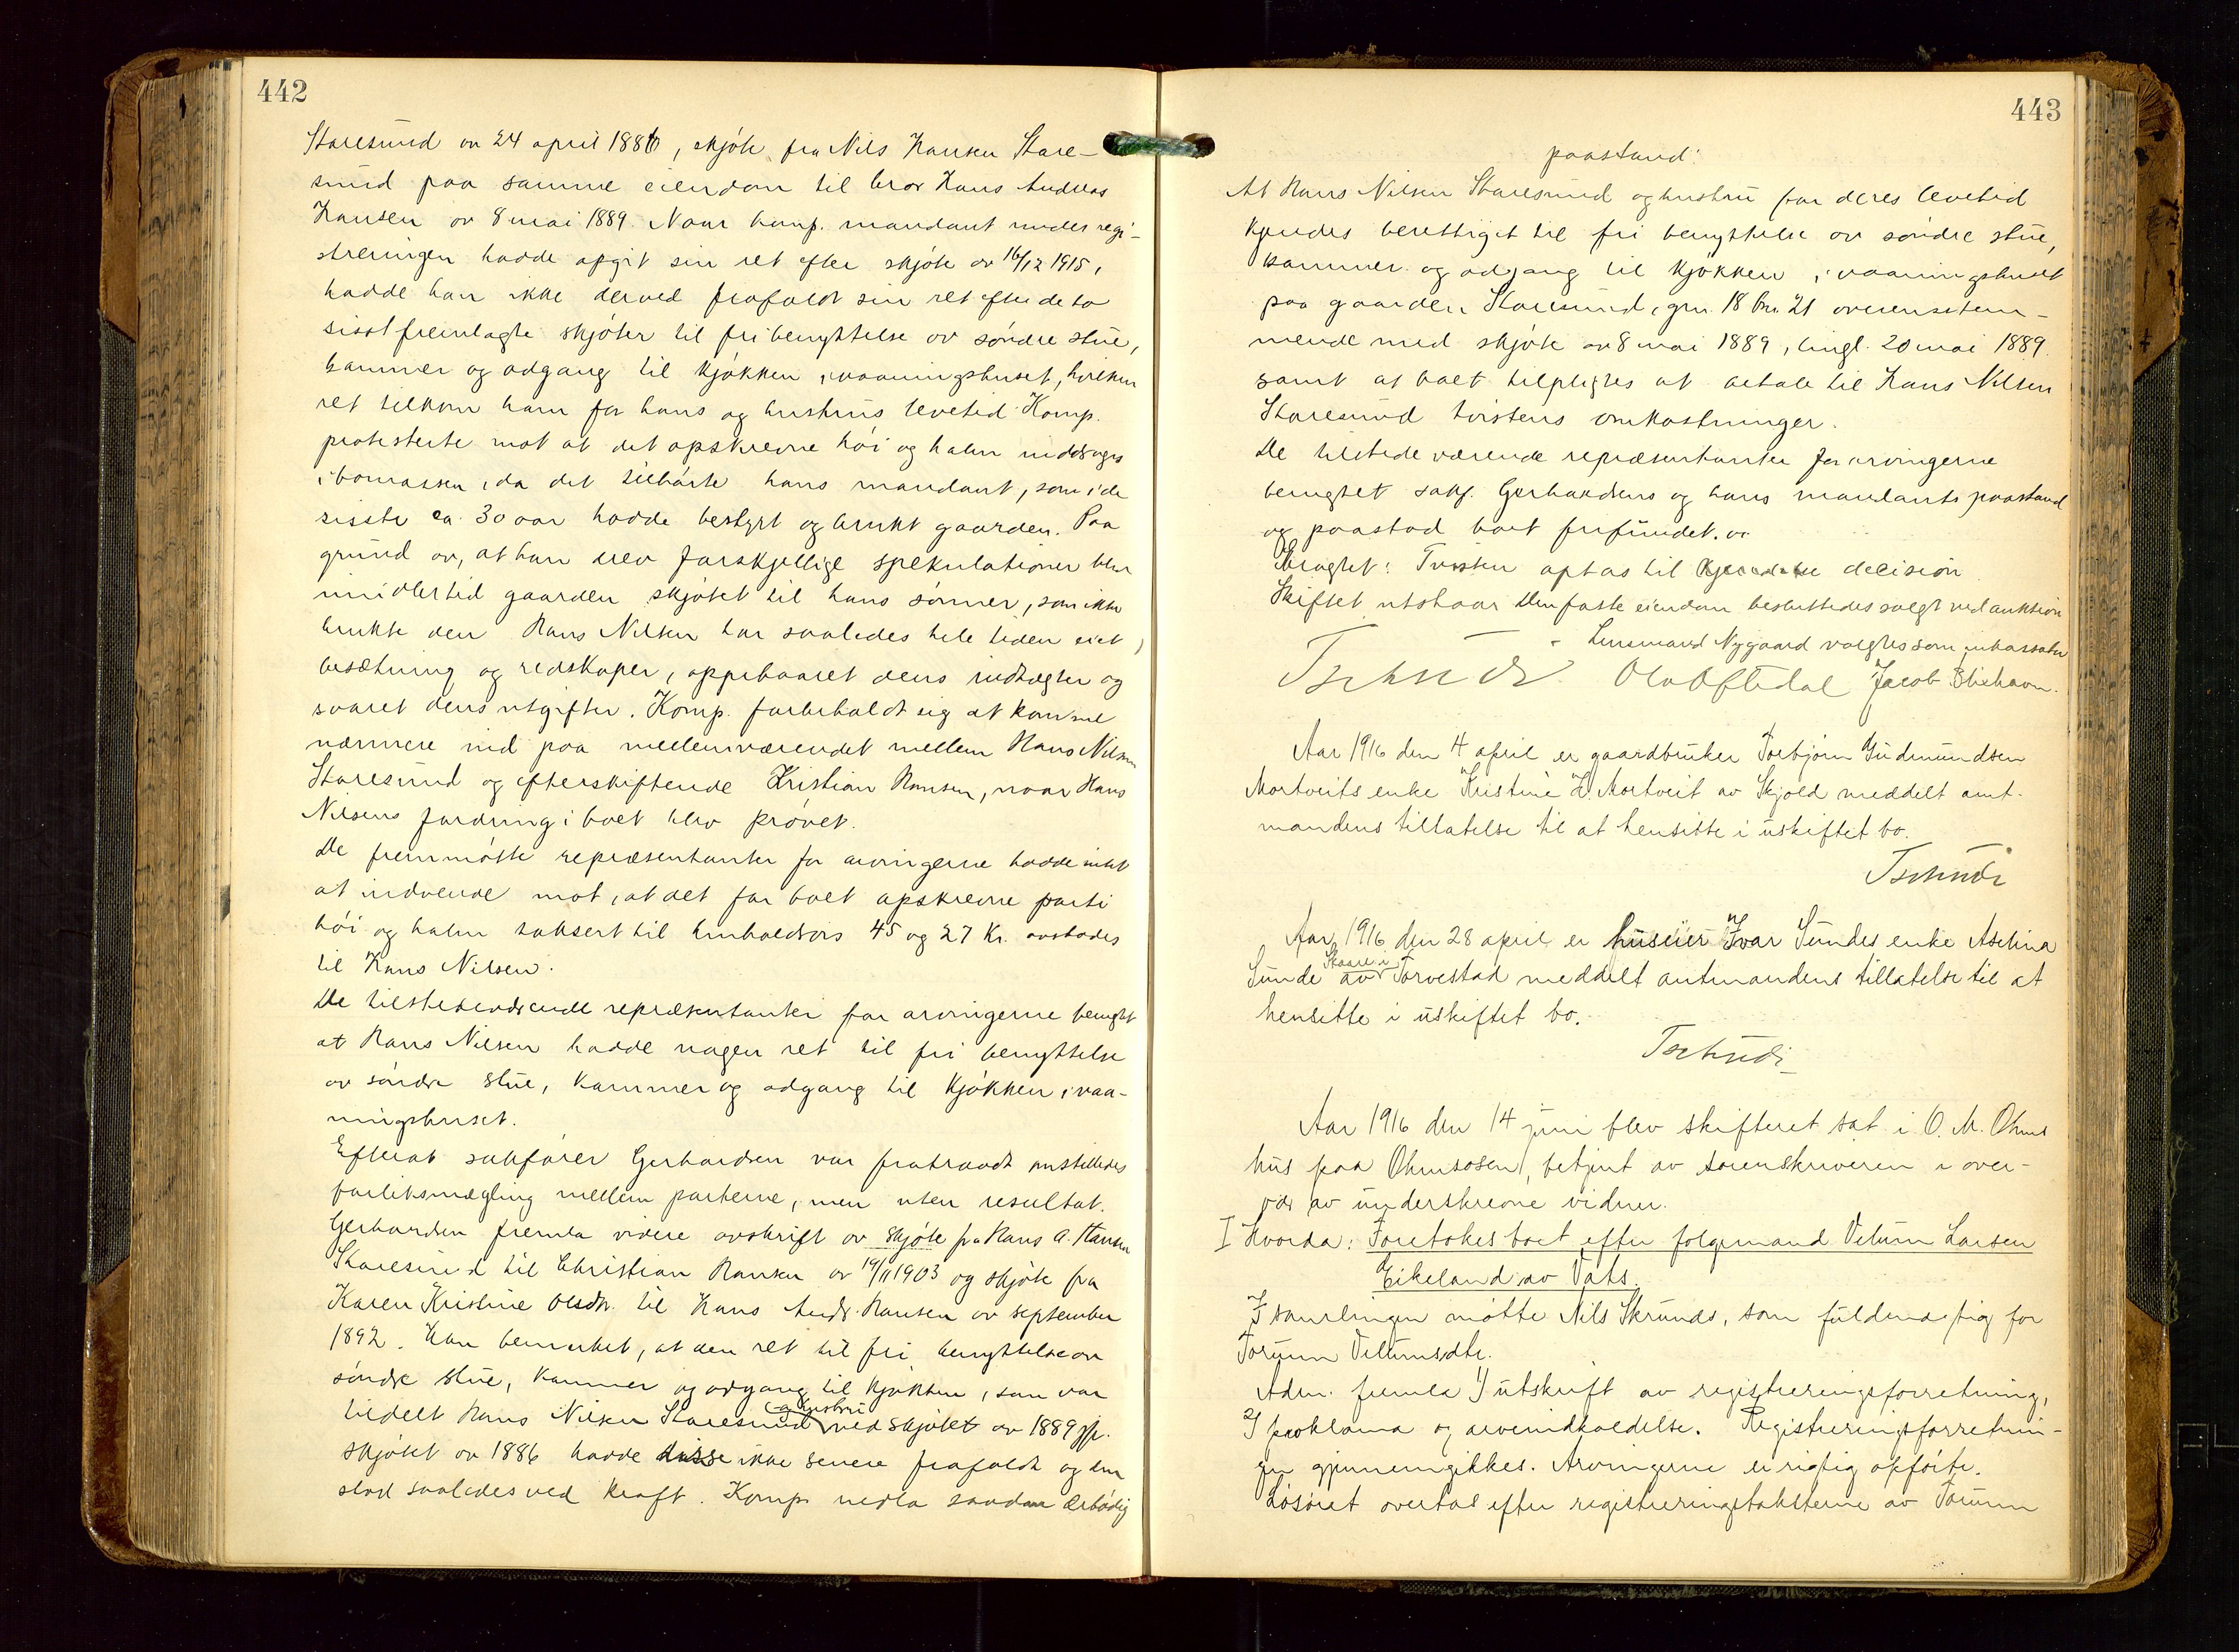 442
Staresund av 24 april 1886, skjöte fra Nils Hansen Stare-
sund paa samme eiendom til bror Hans Andreas
Hansen av 8 mai 1889. Naar komp. mandant under regi-
streringen hadde opgit sin ret efter skjöte av 16/12 1915,
hadde han ikke derved frafaldt sin ret efter de to
sisst fremlagte skjöter til fri benyttelse av söndre stue,
kammer og adgang til kjökken i vaaningshuset, hvilken
ret tilkom ham for hans og hustrus levetid. Komp.
protesterte mot at det opskrevne höi og halm inddroges
i bomassen, da det tilhörte hans mandant, som i de
sisste ca. 30 aar hadde bestyrt og brukt gaarden. Paa
grund av, at han drev forskjellige spekulationer blev
imidlertid gaarden skjötet til hans sönner, som ikke
brukte den. Hans Nilsen har saaledes hele tiden eiet
besætning og redskaper, oppebaaret dens indtægter og
svaret dens utgifter. Komp. forbeholdt sig at komme
nærmere ind paa mellemværendet mellem Hans Nilsen
Staresund og efterskiftende Kristian Hansen, naar Hans
Nilsens fordring i boet blev prövet.
De fremmötte repræsentanter for arvingerne hadde intet
at indvende mot, at det for boet opskrevne parti
höi og halm taksert til henholdsvis 45 og 27 Kr. avstodes
til Hans Nilsen.
De tilstedeværende repræsentanter for arvingerne benegtet
at Hans Nilsen hadde nogen ret til fri benyttelse
av söndre stue, kammer og adgang til kjökken i vaa-
ningshuset.
Efterat sakförer Gerhardsen var fratraadt anstilledes
forliksmægling mellem parterne, men uten resultat.
Gerhardsen fremla videre avskrift av skjöte fra Hans A. Hansen
Staresund til Christian Hansen av 19/11 1903 og skjöte fra
Karen Kristine Olsdtr. til Hans Andr. Hansen av september
1892. Han bemerket, at den ret til fri benyttelse av
söndre stue, kammer og adgang til kjökken, som var
og hustru
tildelt Hans Nilsen Staresund ved skjötet av 1889 jfr.
skjötet av 1886 hadde disse ikke senere frafaldt og den
stod saaledes ved kraft. Komp. nedla saadan ærbödig
443
paastand:
At Hans Nilsen Staresund og hustru for deres levetid
kjendes berettiget til fri benyttelse av söndre stue,
kammer og adgang til kjökken i vaaningshuset
paa gaarden Staresund, gnr. 18 bnr. 21 overensstem-
mende med skjöte av 8 mai 1889, tingl. 20 mai 1889.
samt at boet tilpligtes at betale til Hans Nilsen
Staresund tvistens omkostninger.
De tilstedeværende repræsentanter for arvingerne
benegtet sakf. Gerhardsens og hans mandants paastand
og paastod boet frifundet.
Eragtet: Tvisten optas til decision
Skiftet utstaar. Den faste eiendom besluttedes solgt ved auktion
- Lensmand Nygaard valgtes som inkassator
Tschudi. Ola Oftedal Jacob Blixhavn.
Aar 1916 den 4 april er gaardbruker Torbjörn Gudmundsen
Mortveits enke Kristine H. Mortveit av Skjold meddelt amt-
mandens tillatelse til at hensitte i uskiftet bo.
Tschudi
Aar 1916 den 28 april er huseier Ivar Sundes enke Aselina
Skaare i
Sunde av Torvestad meddelt amtmandens tillatelse til at
hensitte i uskiftet bo.
Tschudi
Aar 1916 den 14 juni blev skifteret sat i O. M. Ohms
hus paa Ohmsosen, betjent av sorenskriveren i over-
vær av underskrevne vidner.
I Hvorda: Foretokes boet efter folgemand Vetum Larsen
Eikeland av Vats.
I samlingen mötte Nils Skrunds, som fuldmægtig for
Torunn Vetumsdtr.
Adm. fremla 1) utskrift av registreringsforretning,
2) proklama og arveindkaldelse. Registreringsforretnin-
gen gjennemgikkes. Arvingerne er rigtig opförte.
Lösöret overtas efter registreringstaksterne av Torunn